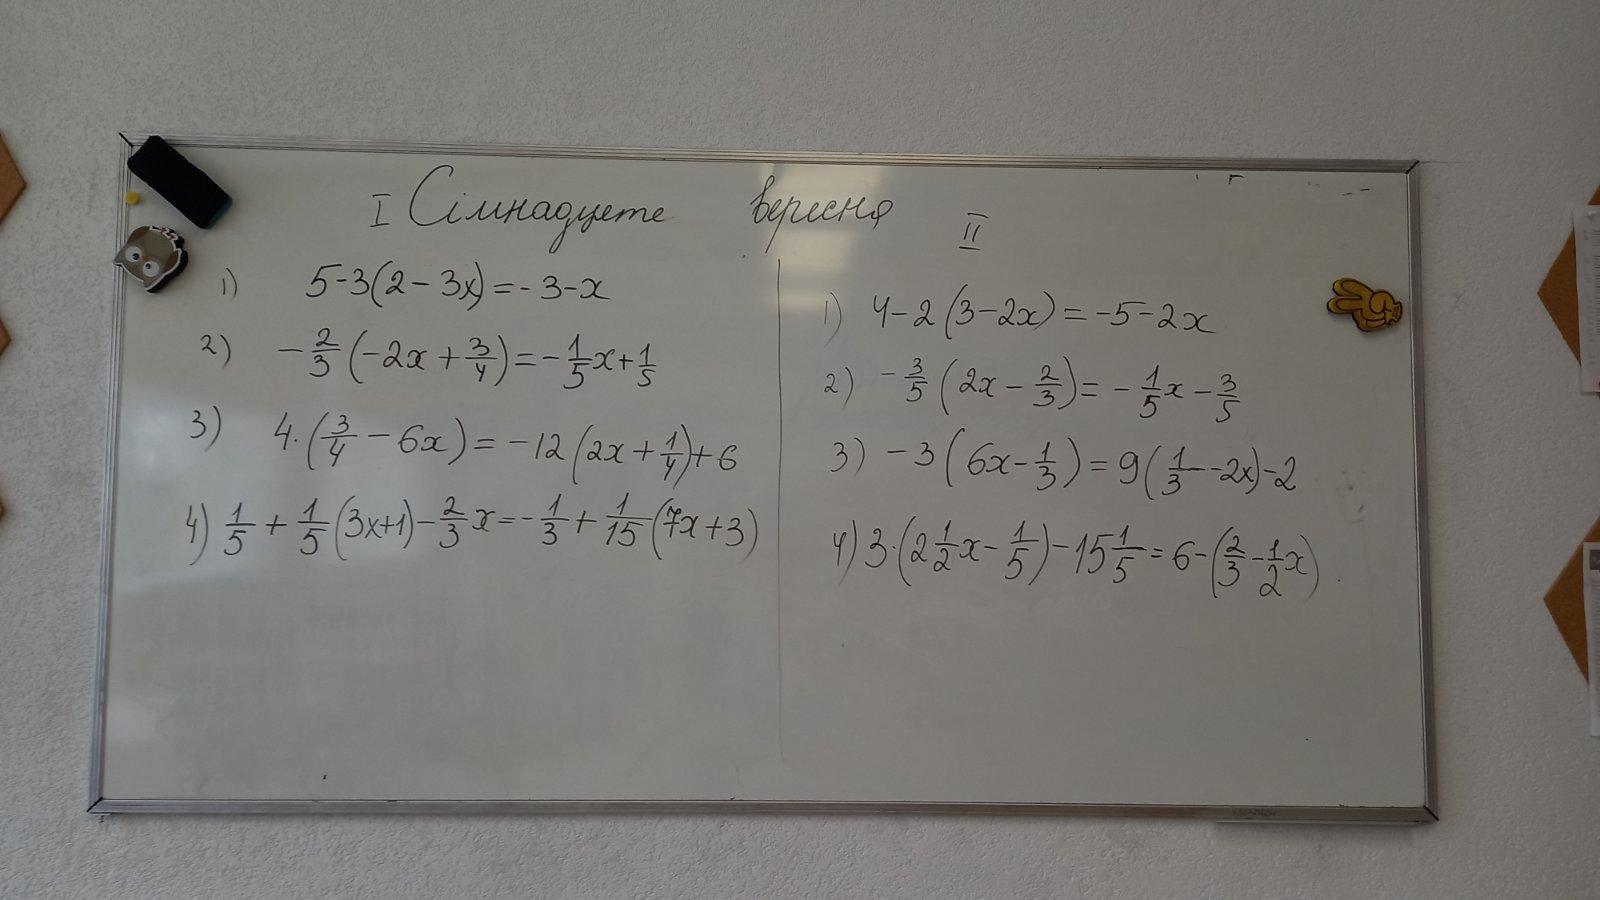 I Сімнадцяте вересня
II
1) 5-3(2-3x)=-3-x
2) -2/3(-2x+3/4)=-1/5x+1/5
3) 4·(3/4-6x)=-12(2x+1/4)+6
4) 1/5+1/5(3x+1)-2/3x=-1/3+1/15(7x+3)
1) 4-2(3-2x)=-5-2x
2) -3/5(2x-2/3)=-1/5x-3/5
3) -3(6x-1/3)=9(1/3-2x)-2
4) 3·(2 1/2x-1/5)-15 1/5=6-(2/3-1/2x)